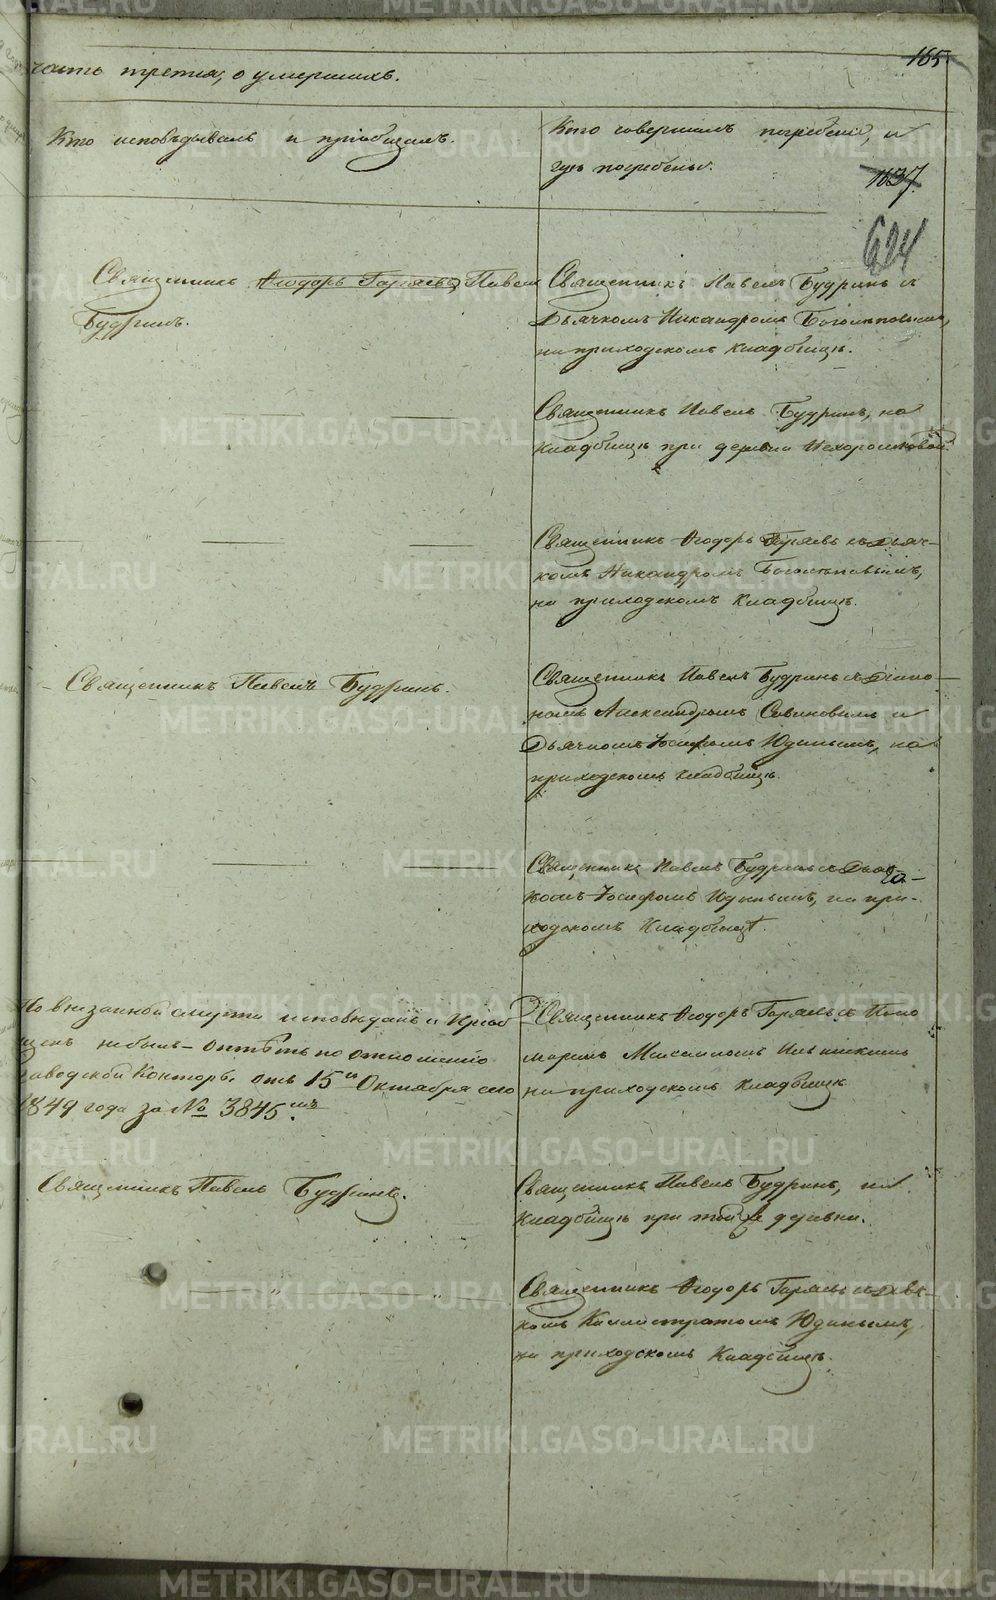 165
часть третья, о умершихъ.
Кто исповѣдывалъ и пріобщалъ.
Кто совершалъ погребеніе, и
гдѣ погребены.
1137
624
Священникъ Ѳеодоръ Гаряевъ Павелъ
Будринъ.
Священникъ Павелъ Будринъ съ
Дьячкомъ Никандромъ Боголѣповымъ,
на приходскомъ кладбищѣ.
Священникъ Павелъ Будринъ, на
кладбищѣ при деревни Нехорошковой.
Священникъ Ѳеодоръ Гаряевъ съ дьяч-
комъ Никандромъ Боголѣповымъ,
на приходскомъ кладбищѣ.
Священникъ Павелъ Будринъ.
Священникъ Павелъ Будринъ съ Діако-
номъ Александромъ Савиновымъ и
Дьячкомъ Іосифомъ Юдинымъ, на
приходскомъ кладбищѣ.
Священникъ Павелъ Будринъ съ
комъ Іосифомъ Юдинымъ, на при-
ходскомъ кладбищѣ.
По внезапной смерти исповѣданъ и пріоб
щенъ небылъ – опѣтъ по отношенію
заводской Конторы, отъ 15го Октября сего
1849 года за № 3845мъ.
Священникъ Ѳеодоръ Гаряевъ съ Поно
маремъ на приходскомъ кладбищѣ
Священникъ Павелъ Будринъ.
Священникъ Павелъ Будринъ, на
кладбищѣ при той же деревни.
Священникъ Ѳеодоръ Гаряевъ съ Дья-
комъ Каллистратомъ Юдинымъ,
на приходскомъ кладбищѣ.
METRIKI.GASO-URAL.RU